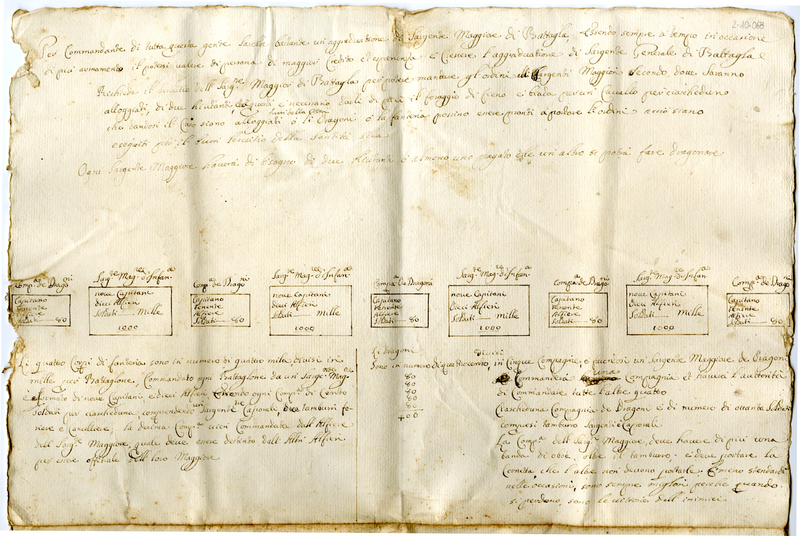 2-10-068
Per Commandante di tutta questa gente sarebbe bastante un'appraduatione di Sargente Maggiore di Battaglia. Essendo sempre a tempo in occasione
di più armamento il potersi valere di persona di maggior credito et esperienza e crescere l'appraduatione di Sargente Generale di Battaglia e
Richiede il servitio dell Sarg.te Maggior di Battaglia per poter mantare gl'ordini alli Sargenti Maggiori secondo dove saranno
alloggiati, di due Aiutanti, a quali è necessario darli di più il foraggio di fieno e biada per un Cavallo per ciascheduno
che dandosi il Caso siano alloggiati ò li Dragoni ò la fanteria possino essere pronti a portare li ordini acciò siano
eseguiti per il buon servitio della santità sua
Ogni Sargente Maggiore haverà di bisogno di due Aiutanti ò almeno uno pagato che un altro si potrà fare dragonare
Comp.a de Dragoni
Sarg.te Mag.re d'Infan.a
Comp.a de Dragoni
Sarg.te Mag.re d'Infan.a
Compa.a de Dragoni
Sarg.te Mag.re d'Infan.a
Compa.a de Dragoni
Sarg.te Mag.re d'Infan.a
Comp.a de Dragoni
Capitano
Tenente
Alfiere
Soldati 80
nove Capitani
dieci Alfieri
Soldati Mille
1000
Capitano
Tenente
Alfiere
Soldati 80
nove Capitani
dieci Alfieri
Soldati Mille
1000
Capitano
Tenente
Alfiere
Soldati 80
nove Capitani
dieci Alfieri
Soldati Mille
1000
Capitano
Tenente
Alfiere
Soldati 80
nove Capitani
dieci Alfieri
Soldati Mille
1000
Capitano
Tenente
Alfiere
Soldati 80
Li quattro Corpi di fanteria sono in numero di quattro mila, divisi in
mille per Battaglione, Commandato ogni Battaglione da un Sarg.te Mag.re
e formato di nove Capitani e dieci Alfieri essendo ogni Corpo di Cento
soldati per ciascheduna comprendervi un Sargente Caporali due tamburi fo-
riere e Cancelliere; la decima Comp.a vien Commandata dall Alfiere
dell Sarg.te Maggiore, quale deve essere distinto dall Altri Alfieri
per essere offitiale dell loro Maggiore
Li Dragoni
sono in numero di quattrocento divisi in Cinque Compagnie, e
80
80
80
80
80
400
un Sargente Maggiore de Dragoni
Commanderà una Compagnia et haverà l'autorità
di Commandare tutte l'altre quattro
Ciascheduna Compagnia de Dragoni è di numero di ottanta Soldati
compresi tamburo sargenti e Caporali
La Comp.a dell Sarg.te Maggiore, deve havere di più una
banda di oboe, oltre il tamburo. e deve portare la
Cornetta, che l'altre non devono portarle. E meno stendardi
nelle occasioni, sono sempre migliori perché quando
si perdono, sono le vittorie dell inimici